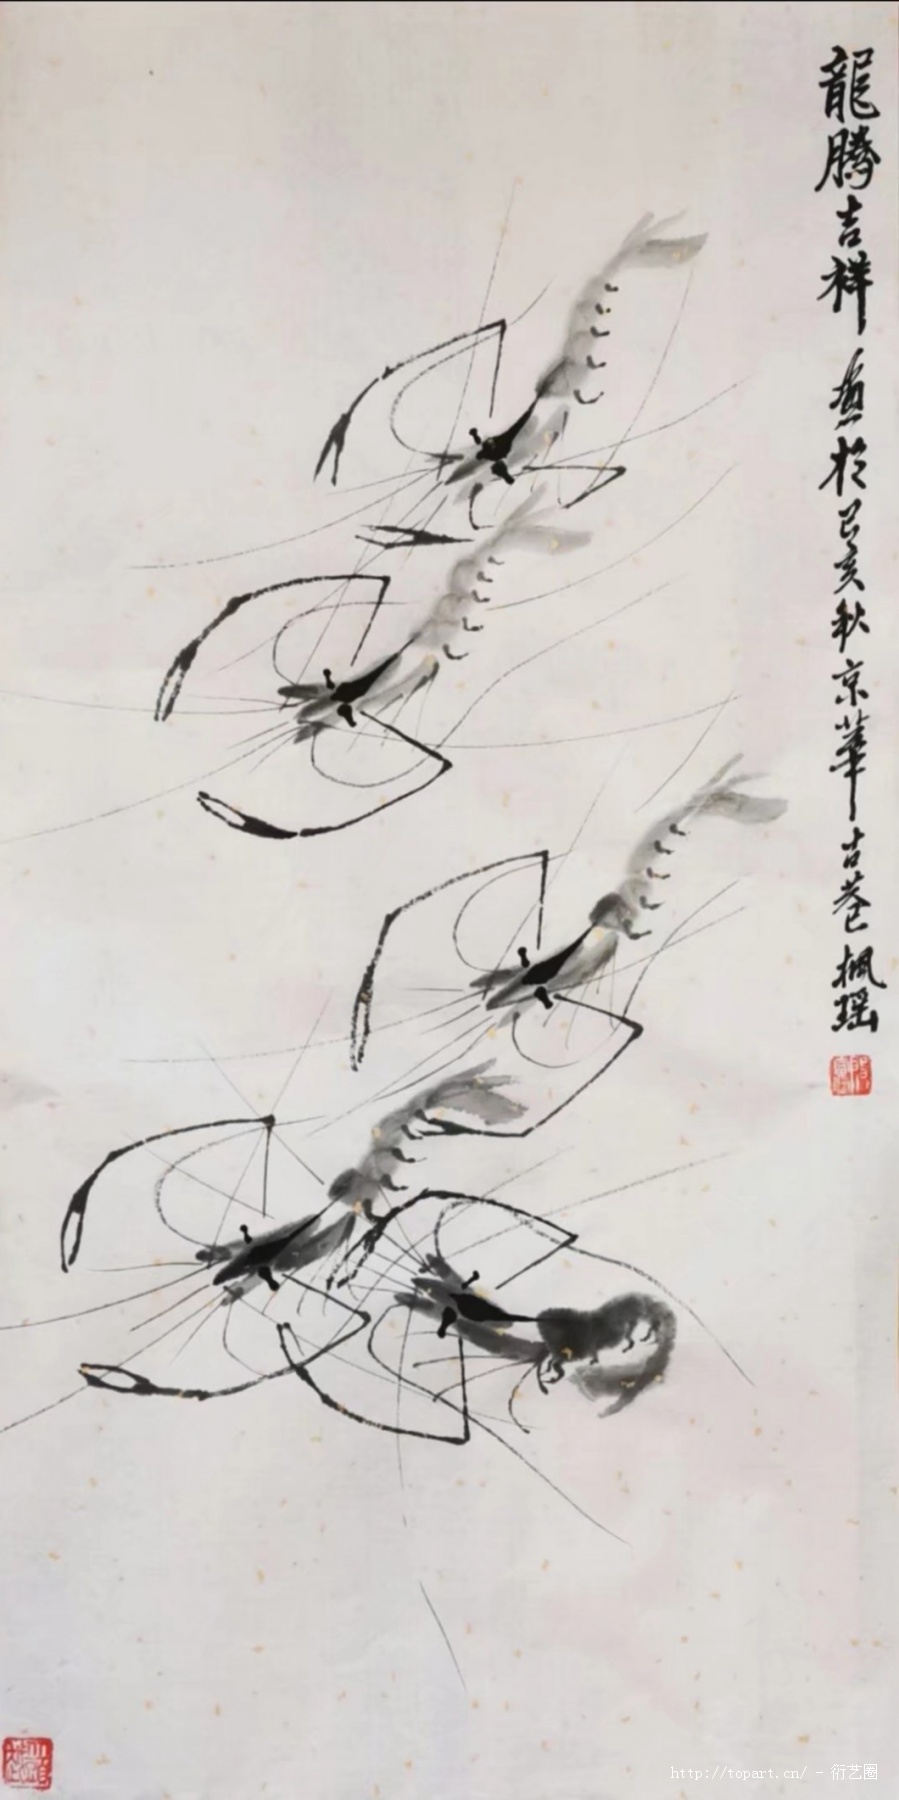 龍騰吉祥 画於己亥秋京華吉巷楓瑶
http://topart.cn/ - 衍艺圈